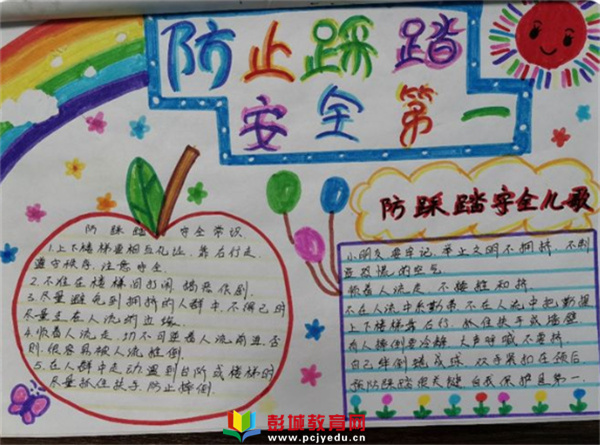 防止踩踏
安全第一
防踩踏安全常识
1.上下楼梯要相互礼让,靠右行走,
遵守秩序,注意安全.
2.不准在楼梯间打闹,搞恶作剧.
3.尽量避免到拥挤的人群中,不得已时
尽量走在人流的边缘.
4.顺着人流走,切不可逆着人流前进,否
则,很容易被人流推倒.
5.在人群中走动,遇到台阶或楼梯时
尽量抓住扶手,防止摔倒.
防踩踏安全儿歌
小朋友要牢记,举止文明不拥挤,不制
造恐慌的空气
顺着人流走,不
不在人流中系鞋带,不在人流中把物捡
上下楼梯靠右行,抓住扶手或墙壁
有人摔倒要冷静,大声呼喊不要挤
自己绊倒蜷成球,双手紧扣在颈后
预防踩踏是关键,自我保护是第一
彭城教育网
www.pcjyedu.cn